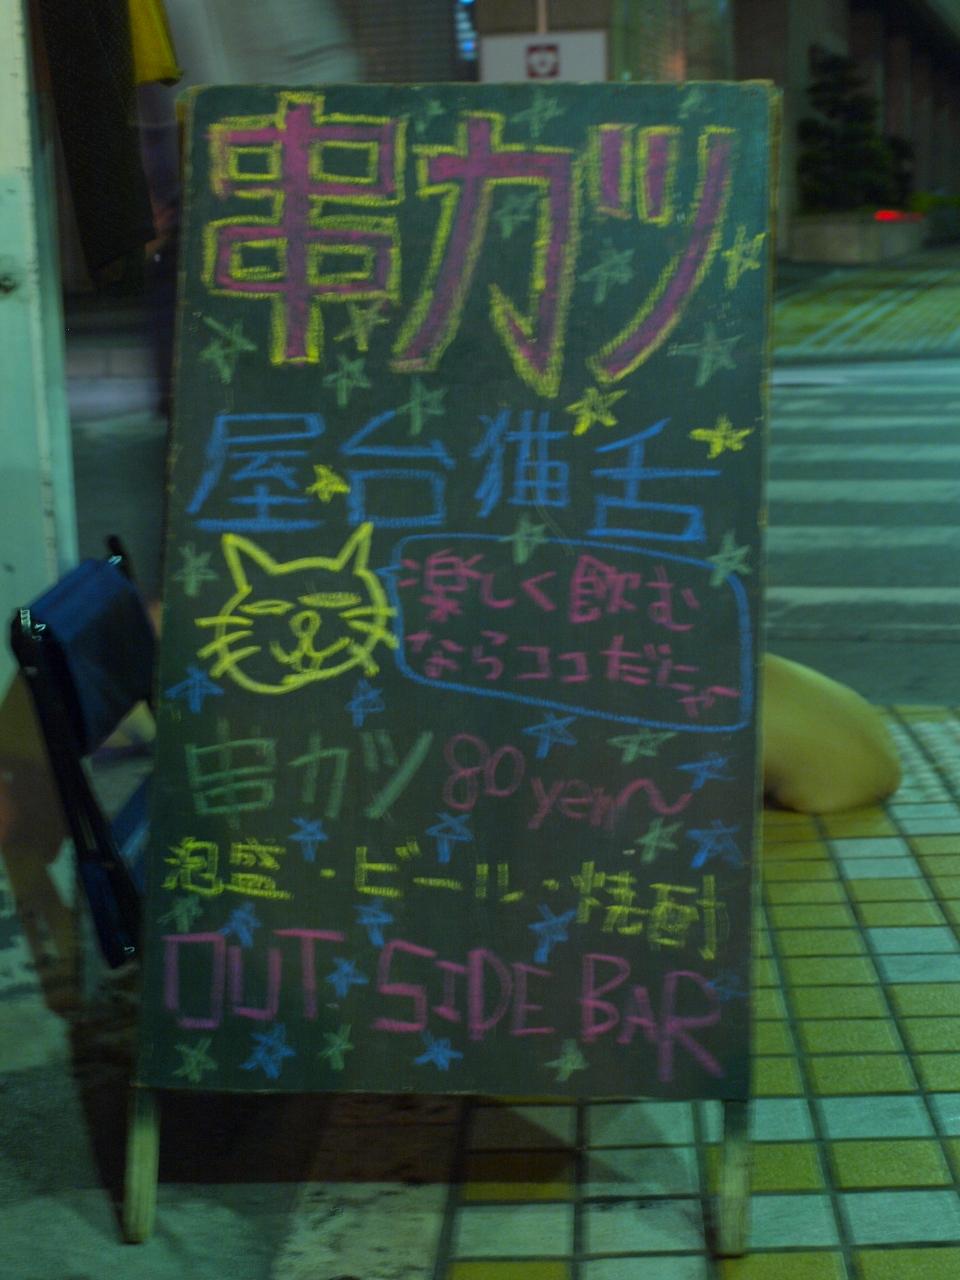 串カツ
屋台猫舌
楽しく飲む
ならココだにゃー
串カツ 80yen〜
泡盛・ビール・焼酎
OUT SIDE BAR